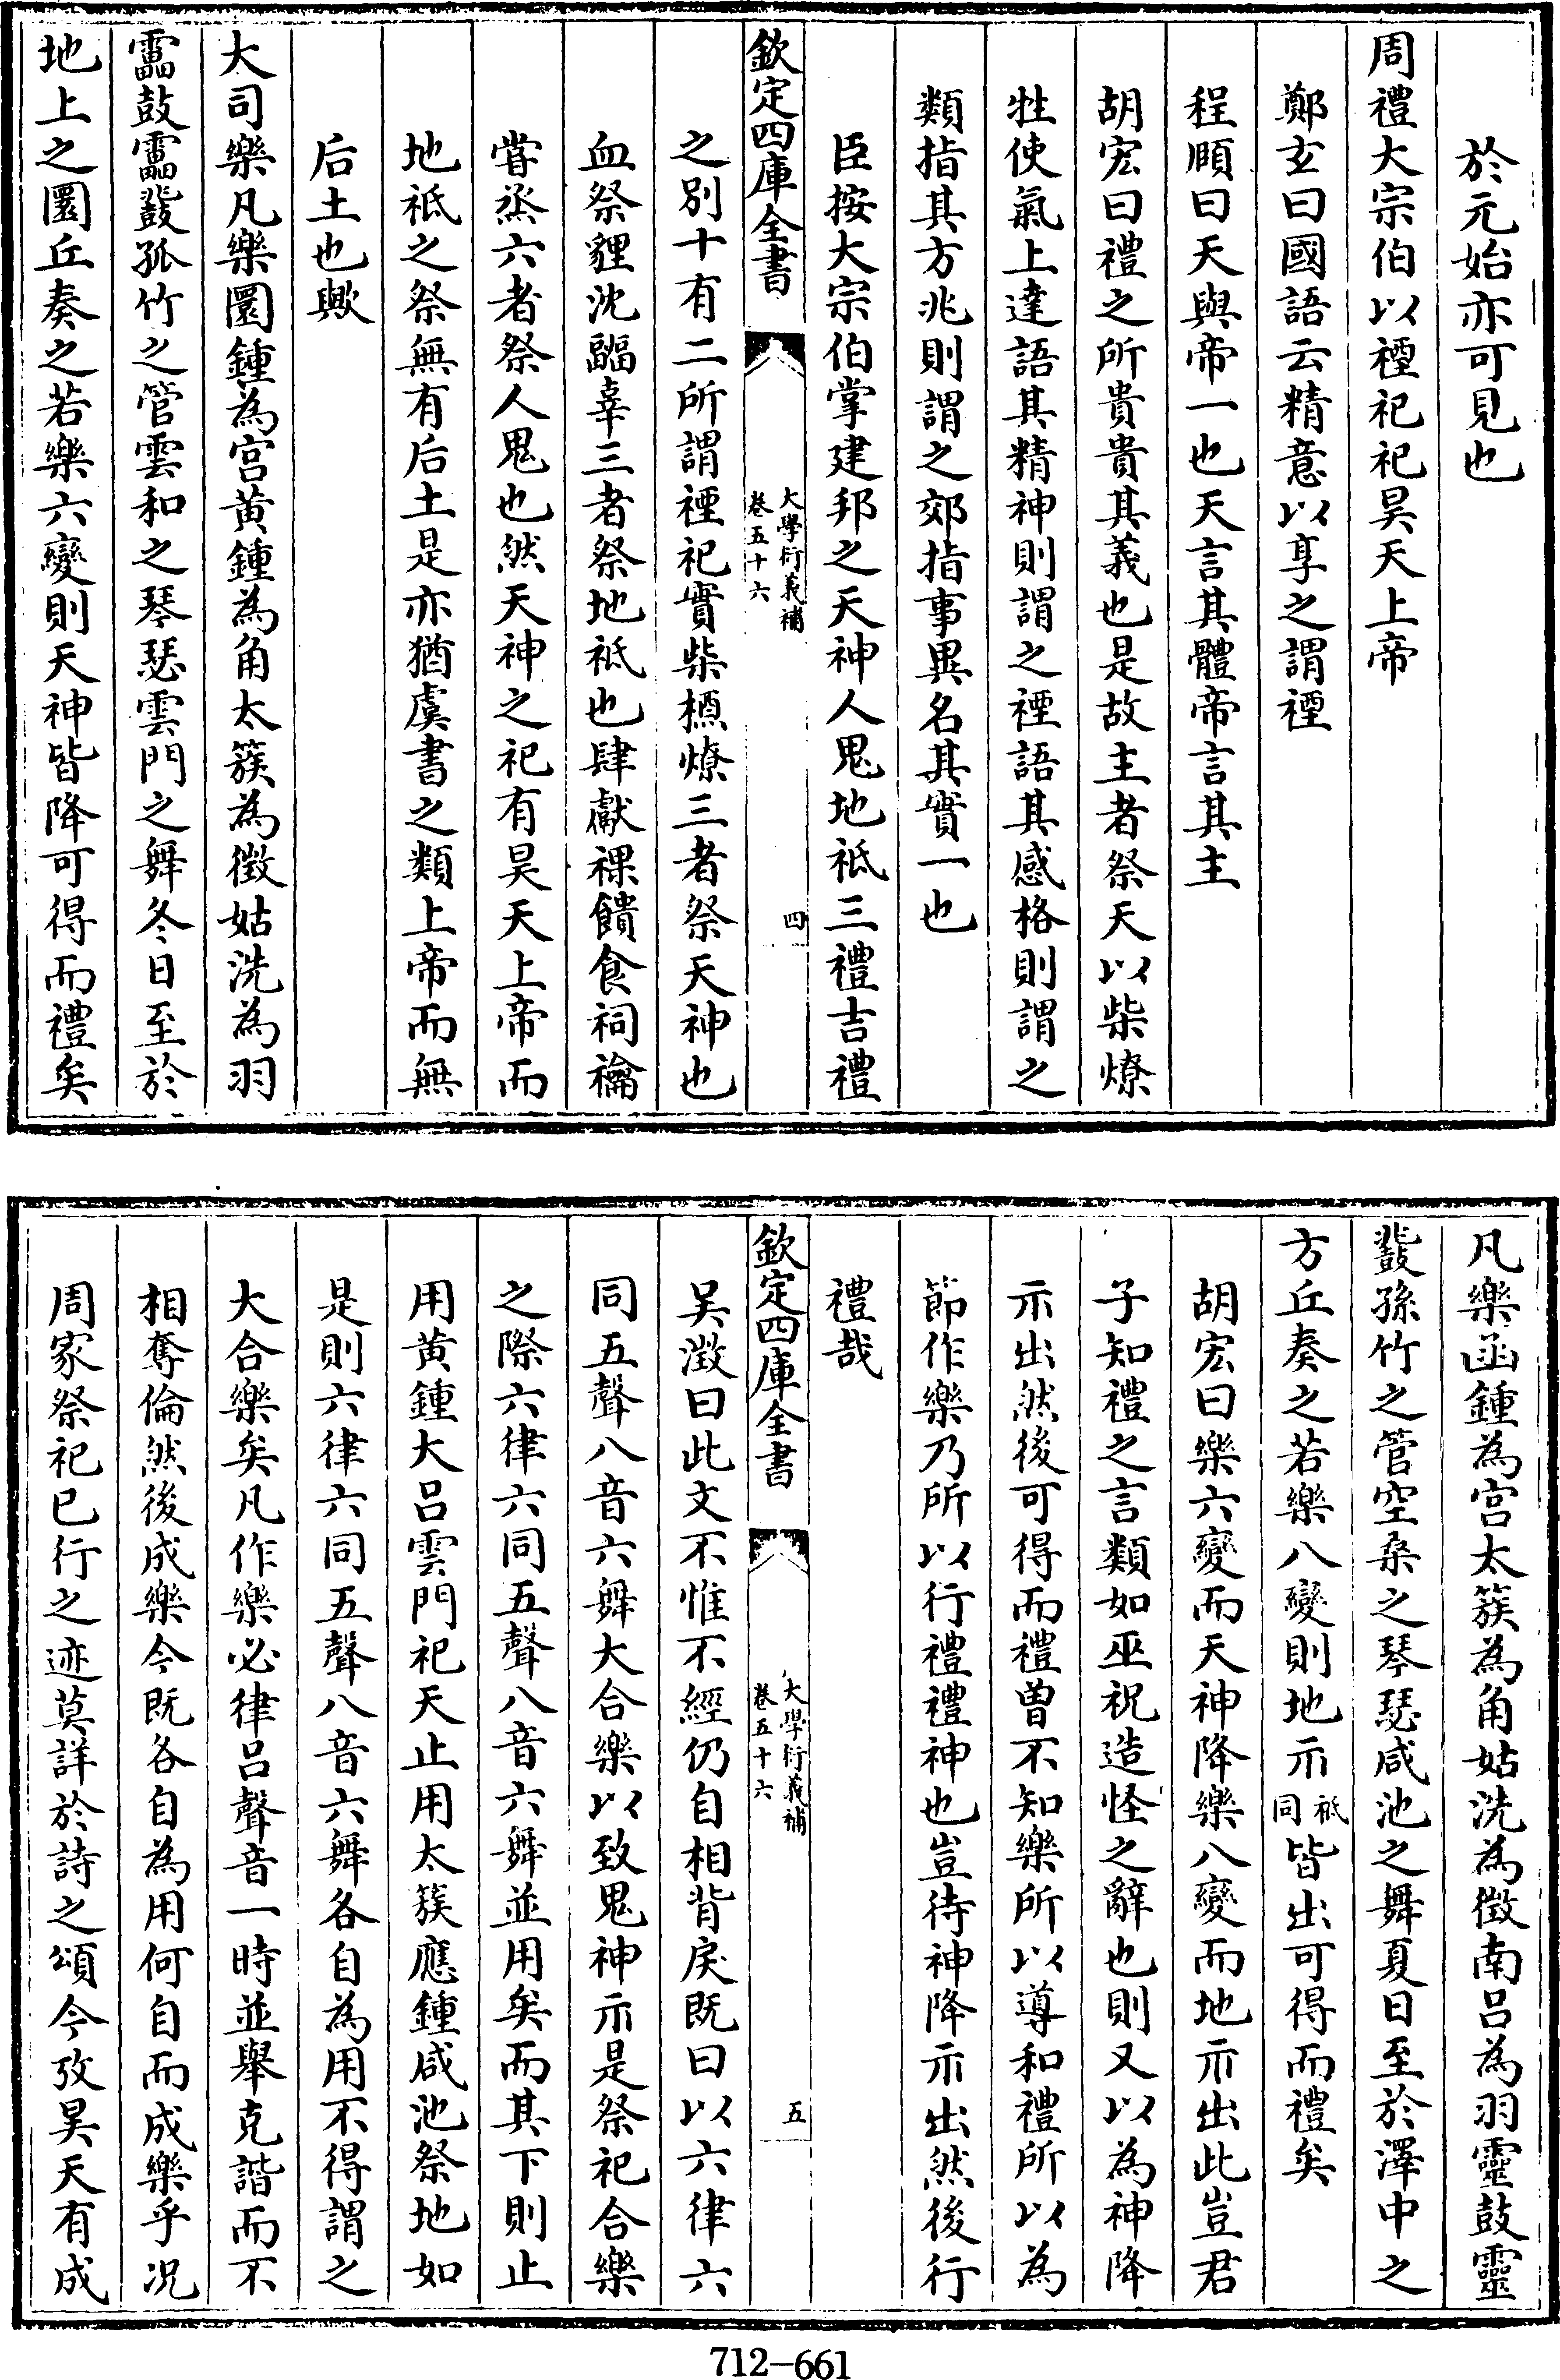 於元始亦可見也
周禮大宗伯以禋祀祀昊天上帝
鄭玄曰國語云精意以享之謂禋
程頤曰天與帝一也天言其體帝言其主
胡宏曰禮之所貴貴其義也是故主者祭天以柴燎
牲使氣上達語其精神則謂之禋語其感格則謂之
類指其方兆則謂之郊指事異名其實一也
臣按大宗伯掌建邦之天神人鬼地祗三禮吉禮
欽定四庫全書
大學衍義補
卷五十六
四
之別十有二所謂禋祀實柴槱燎三者祭天神也
血祭貍沈疈辜三者祭地祗也肆獻祼饋食祠禴
嘗烝六者祭人鬼也然天神之祀有昊天上帝而
地祗之祭無有后土是亦猶虞書之類上帝而無
后土也歟
大司樂凡樂圜鍾為宫黄鍾為角太簇為徴姑洗為羽
靁鼓靁鼗孤竹之管雲和之琴瑟雲門之舞冬日至於
地上之圜丘奏之若樂六變則天神皆降可得而禮矣
凡樂函鍾為宫太簇為角姑洗為徴南吕為羽靈鼓靈
鼗孫竹之管空桑之琴瑟咸池之舞夏日至於澤中之
方丘奏之若樂八變則地示祗同皆出可得而禮矣
胡宏曰樂六變而天神降樂八變而地示出此豈君
子知禮之言類如巫祝造怪之辭也則又以為神降
示出然後可得而禮曽不知樂所以導和禮所以為
節作樂乃所以行禮禮神也豈待神降示出然後行
禮哉
欽定四庫全書
大學衍義補
卷五十六
五
吴澂曰此文不惟不經仍自相背戾既曰以六律六
同五聲八音六舞大合樂以致鬼神示是祭祀合樂
之際六律六同五聲八音六舞並用矣而其下則止
用黄鍾大吕雲門祀天止用太簇應鍾咸池祭地如
是則六律六同五聲八音六舞各自為用不得謂之
大合樂矣凡作樂必律吕聲音一時並舉克諧而不
相奪倫然後成樂今既各自為用何自而成樂乎况
周家祭祀已行之迹莫詳於詩之頌今攷昊天有成
712-661